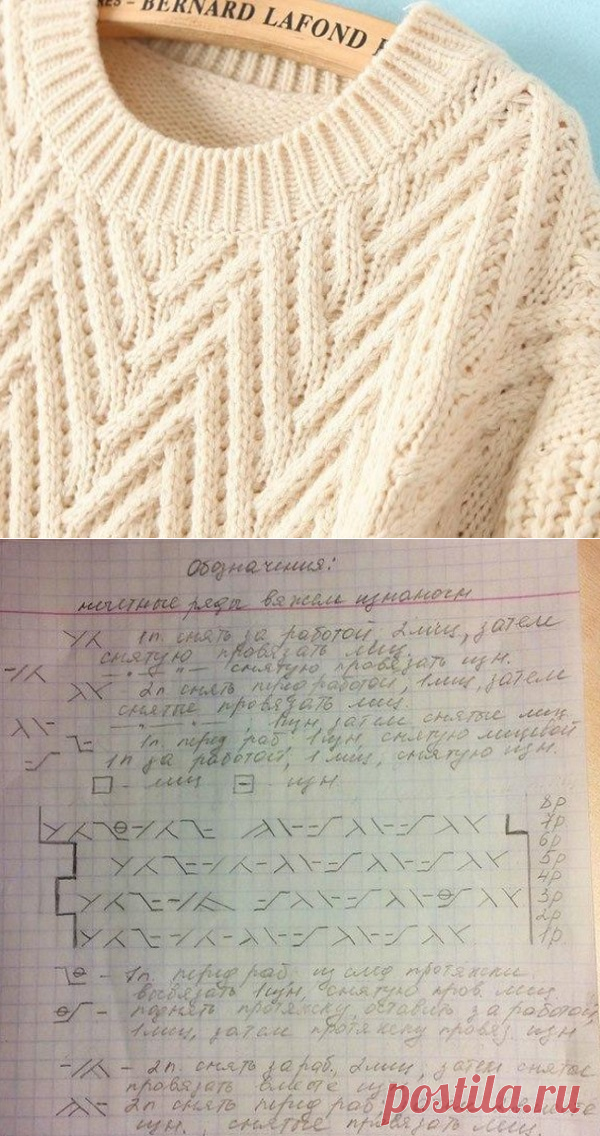 - BERNARD LAFOND
Обозначения:
нечетные ряды вяжем изнаночн
1п. снять за работой, 2лиц, затем
снятую провязать лиц.
— " — " — снятую провязать изн.
2п снять перед работой, 1лиц, затем
снятые провязать лиц.
— " — " — 1изн, затем снятые лиц.
1п. перед раб, 1изн, снятую лицевой
1п за работой, 1 лиц, снятую изн.
- лиц - изн.
8р
7р
6р
5р
4р
3р
2р
1р
- 1п. перед раб. из след протяжки
вывязать 1изн, снятую пров. лиц
- поднять протяжку, оставить за работой,
1лиц, затем протяжку провяз. изн
- 2п. снять за раб., 2лиц, затем снятые
провязать вместе изн
2п снять перед раб, вместе
изн., снятые провязать лиц.
postila.ru